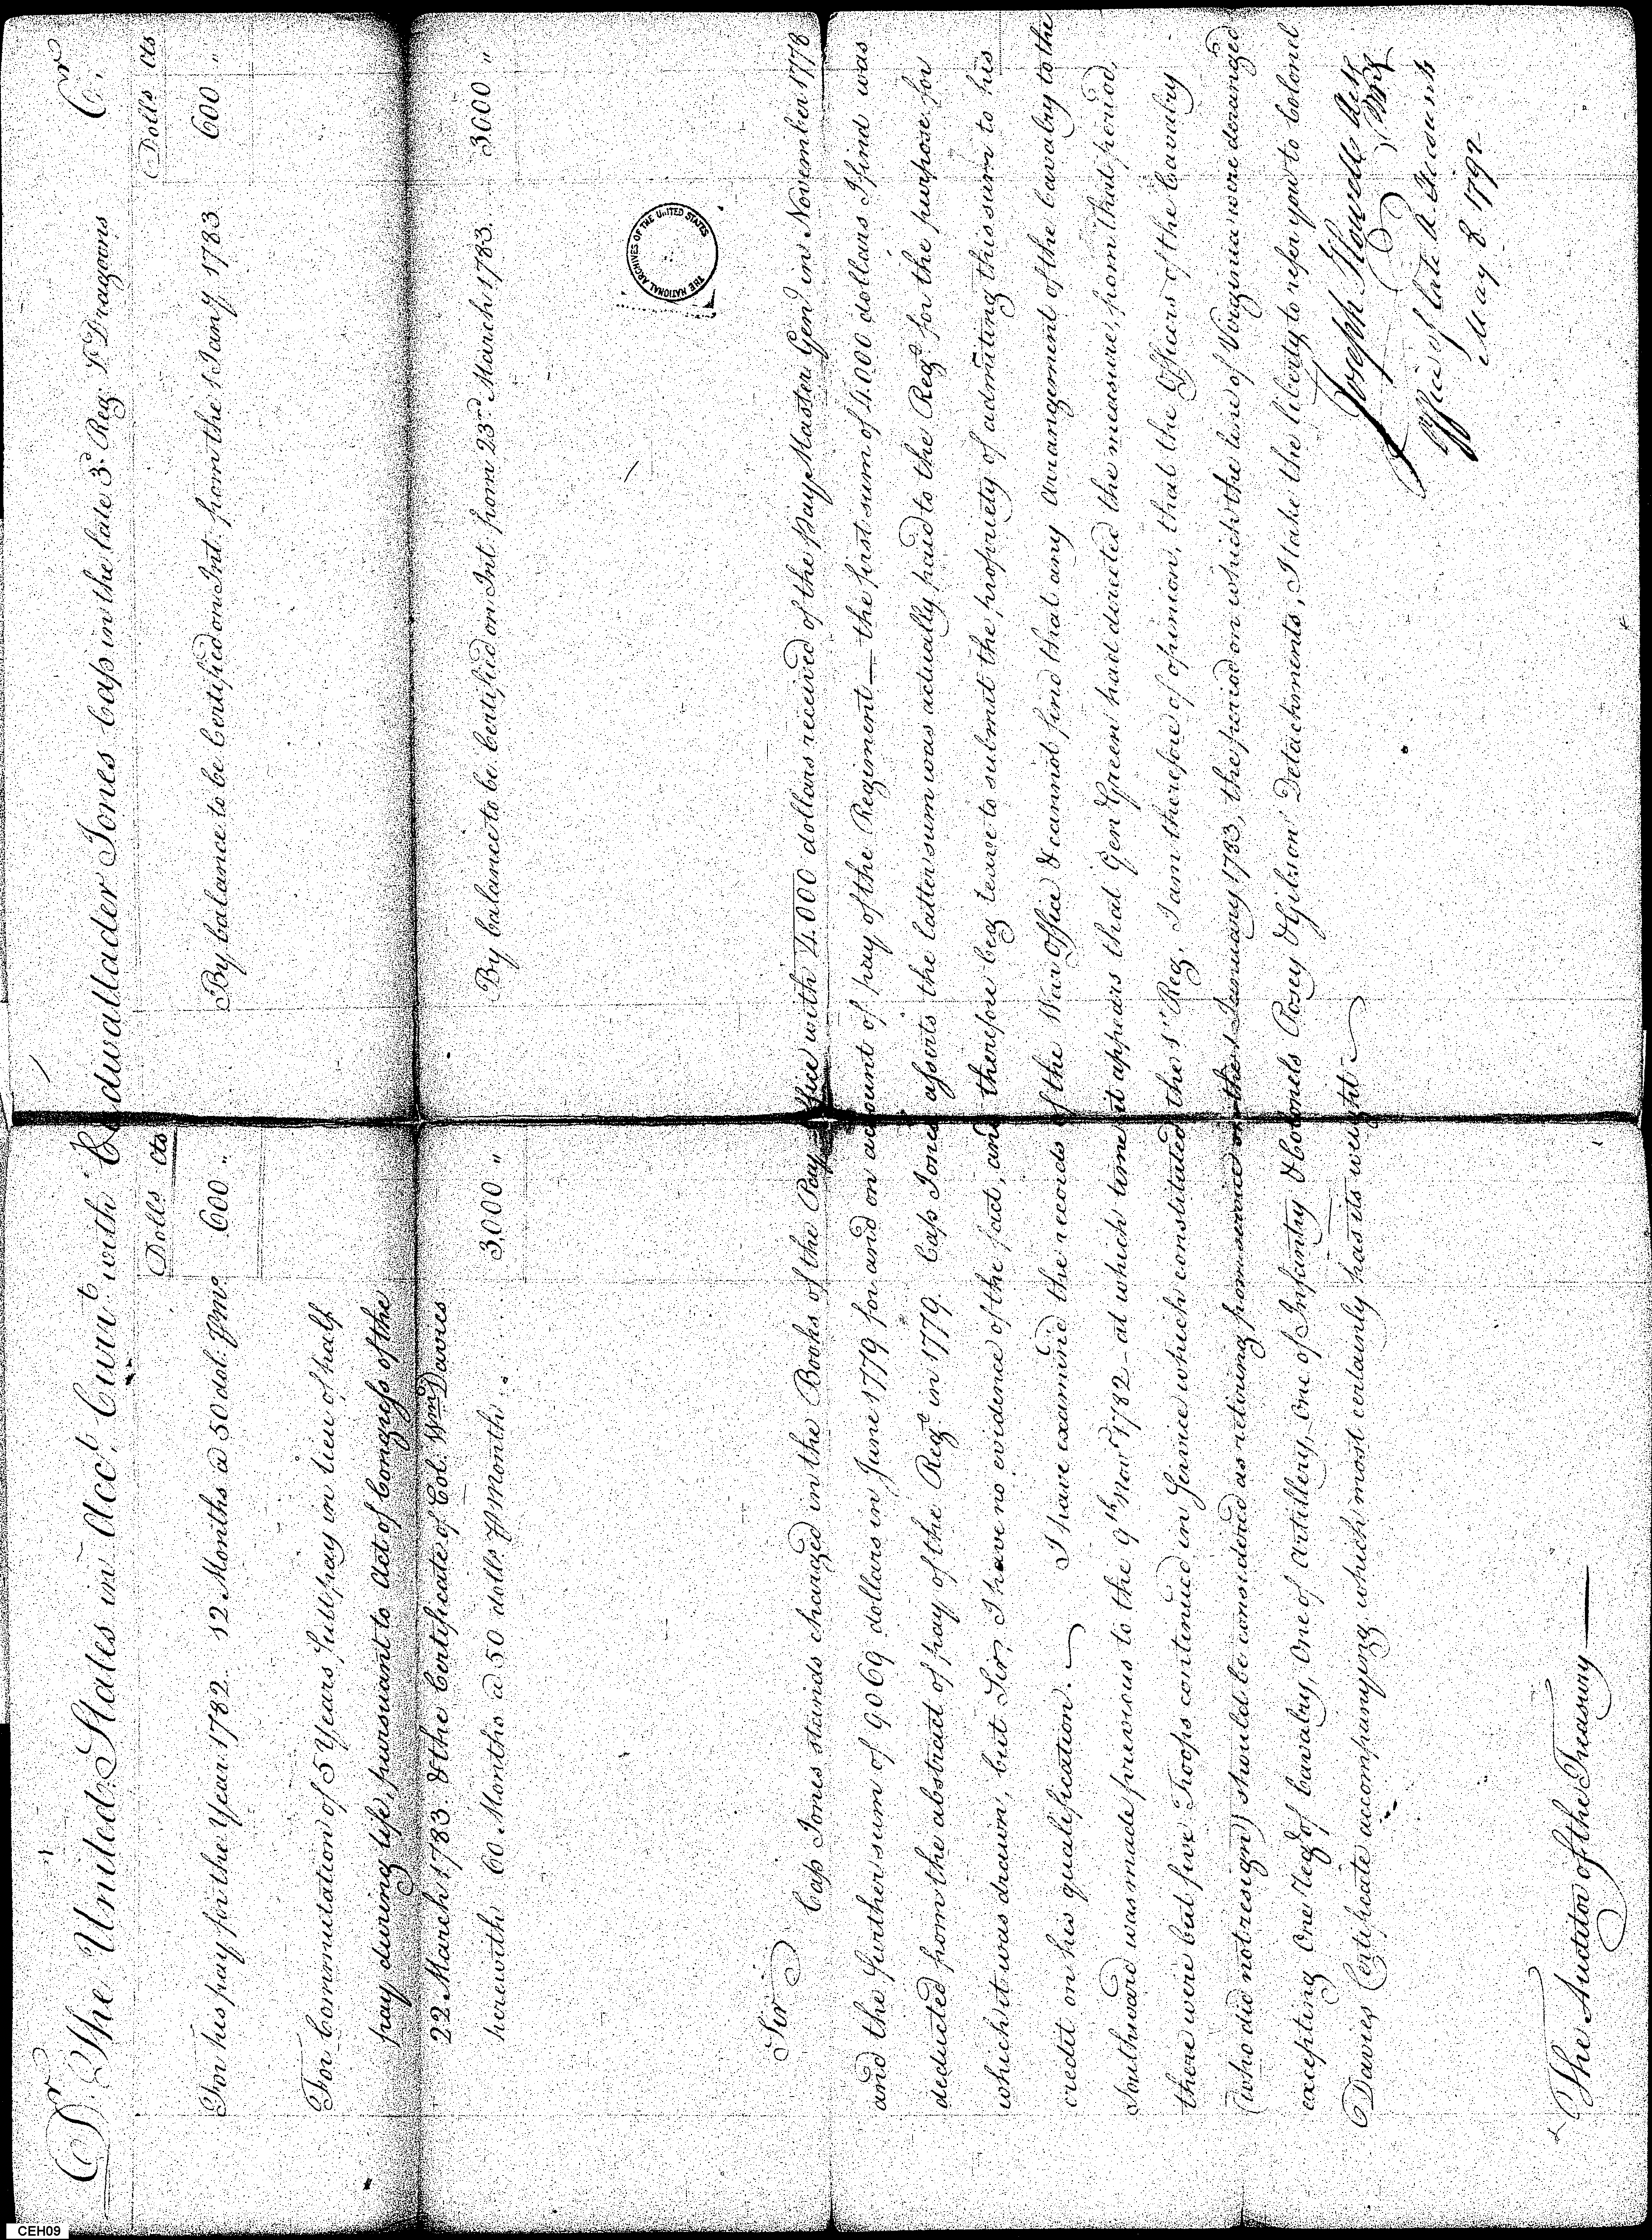 Dr. The United States in Acct. Currt. with Cadwallader Jones Cap in the late 3d. Reg. Lt Dragoons Cr.
Dolls cts Dolls cts
For his pay for the Year 1782. 12 Months @ 50 dol. pr mo. 600 " By balance to be Certified on Int. from the 1 Jany. 1783. 600 "
For Commutation of 5 Years full pay in lieu of half
pay during life, pursuant to Act of Congress of the
22 March 1783. & the Certificate of Col. Wm. Davies
herewith 60 Months @ 50 dolls. pr month 3,000 " By balance to be Certified on Int. from 23rd. March 1783. 3000 "
THE NATIONAL ARCHIVES OF THE UNITED STATES
Sir
Cap Jones stands charged in the Books of the Pay Office with 4.000 dollars received of the pay Master Genl in November 1778
and the further sum of 9069 dollars in June 1779 for and on account of pay of the Regiment — the first sum of 4.000 dollars I find was
deducted from the abstract of pay of the Regt. in 1779. Cap Jones asserts the latter sum was actually paid to the Regt. for the purpose for
which it was drawn, but Sir, I have no evidence of the fact, and therefore beg leave to submit the propriety of admitting this sum to his
credit on his qualification. I have examined the records of the War Office & cannot find that any arrangement of the Cavalry to the
Southward was made previous to the 9th. Novr. 1782 – at which time it appears that Gen Green had directed the measure, from that period,
there were but five Troops continued in Service which constituted the 1st Reg. I am therefore of opinion, that the Officers of the Cavalry
(who did not resign) should be considered as retiring from service on the 1 January 1783, the period on which the line of Virginia were deranged
excepting One Regt of Cavalry, One of Artillery, One of Infantry & Colonels Posey & Gibson Detachments, I take the liberty to refer you to Colonel
Davies Certificate accompanying, which most certainly has its weight
Joseph Howell
Office of late A. Accounts
May 8 1792
The Auditor of the Treasury
CEH09